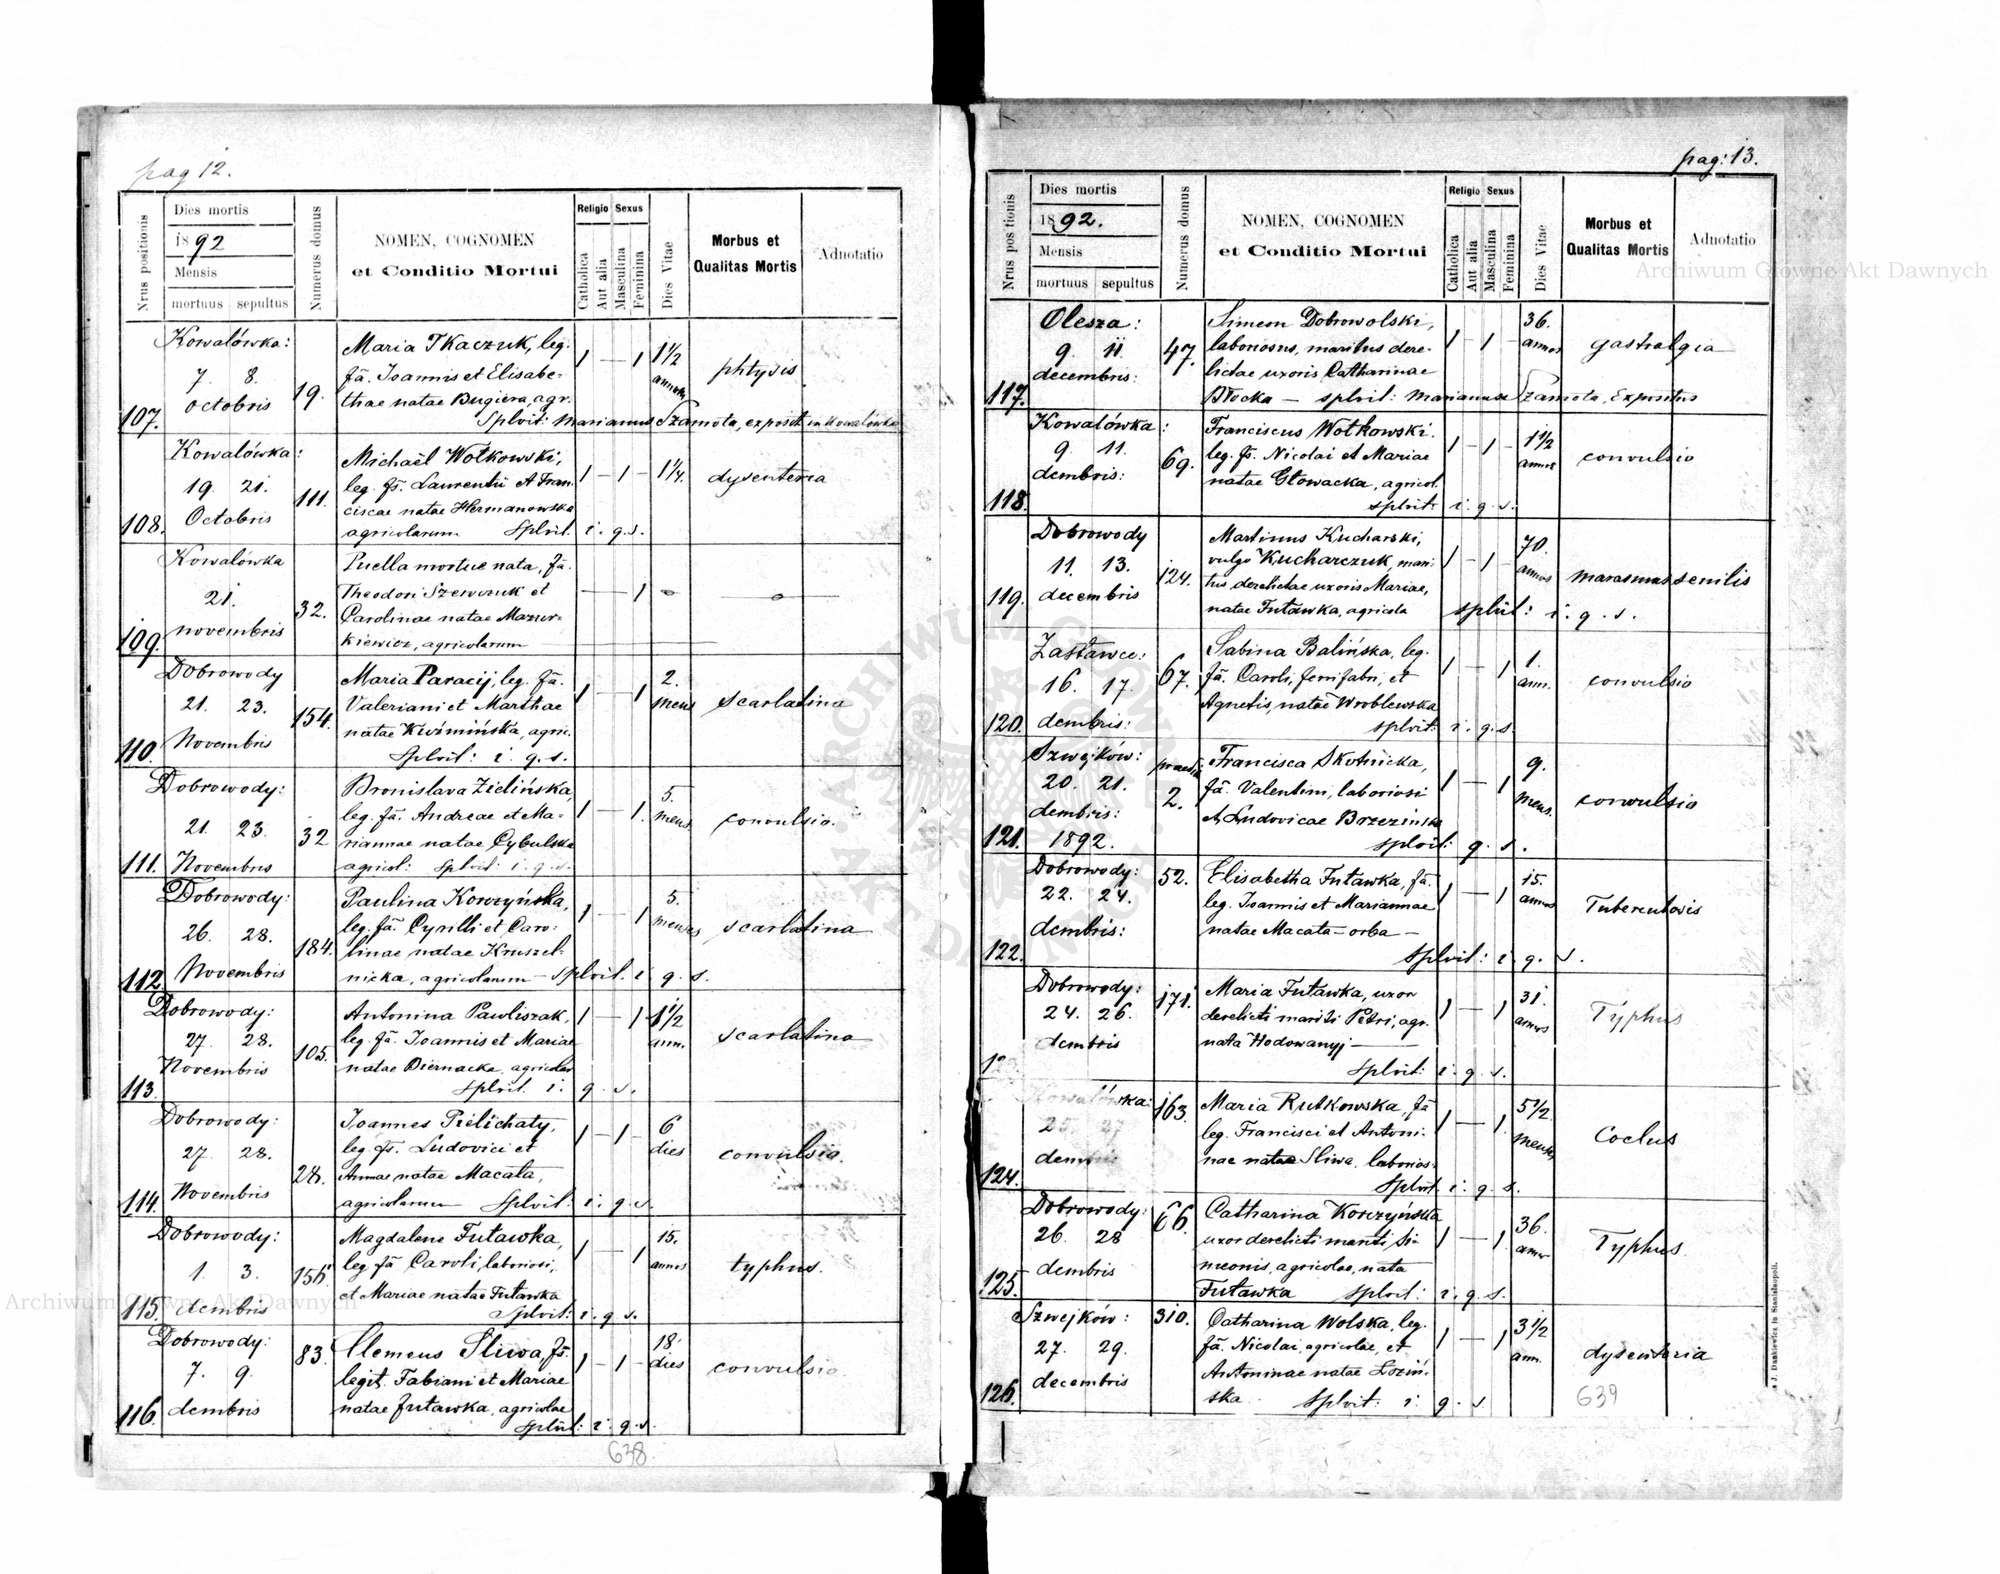 pag 12.
Nrus positionis
Dies mortis
1892
Mensis
mortuus sepultus
Numerus domus
NOMEN, COGNOMEN
et Conditio Mortui
Religio Sexus
Catholica
Aut alia
Masculina
Feminina
Dies Vitae
Morbus et
Qualitas Mortis
Adnotatio
107. Kowalówka:
7. 8.
octobris
19.
Maria Tkaczuk, leg.
fa. Joannis et Elisabe-
thae natae Bugiera, agr.
Splvit: Marianus Szamota, exposit. in Kowalówka
1 — 1 1½
annor
phtysis
108. Kowalówka:
19. 21.
Octobris
111.
Michaël Wołkowski,
leg. fs. Laurentii et Fran
ciscae natae Hermanowska
agricolarum Splvit. i. q. s.
1 — 1 — 1¼.
dysenteria
109. Kowalówka
21.
novembris
32.
Puella mortue nata, fa.
Theodori Szewczuk et
Carolinae natae Mazur-
kiewicz, agricolarum
— 1
110. Dobrowody
21. 23.
Novembris
154.
Maria Paracij, leg. fa.
Valeriani et Marthae
natae Kuźmińska, agri.
Splvit: i. q. s.
1 — 1 2.
mens
scarlatina
111. Dobrowody:
21. 23.
Novembris
32
Bronislava Zielińska,
leg. fa. Andreae et Ma-
riannae natae Cybulska
agricol: splvit: i. q. s.
1 — 1. 5.
mens.
convulsio.
112. Dobrowody:
26. 28.
Novembris
184.
Paulina Korczyńska,
leg. fa. Cyrilli et Caro-
linae natae Kruszel-
nicka, agricolarum — splvit. i. q. s.
1 — 1 5.
menses
scarlatina
113. Dobrowody:
27. 28.
Novembris
105.
Antonina Pawliszak,
leg. fa. Joannis et Mariae
natae Biernacka, agricolar
splvit. i. q. s.
1 — 1 1½
ann.
scarlatina
114. Dobrowody:
27. 28.
Novembris
28.
Joannes Prelichaty,
leg. fs. Ludovici et
Annae natae Macała,
agricolarum Splvit. i. q. s.
1 — 1 — 6
dies
convulsio.
115. Dobrowody:
1. 3.
dcmbris
156.
Magdalene Futawka,
leg. fa Caroli, laboriosi,
et Mariae natae Futawka
Splvit: i. q. s.
1 — 1 15.
annos
typhus.
116. Dobrowody:
7. 9.
dcmbris
83.
Clemens Śliwa, fs.
legit. Fabiani et Mariae
natae Futawka, agricolae
splvit: i. q. s.
1 — 1 — 18.
dies
convulsio
638.
pag: 13.
Nrus positionis
Dies mortis
1892.
Mensis
mortuus sepultus
Numerus domus
NOMEN, COGNOMEN
et Conditio Mortui
Religio Sexus
Catholica
Aut alia
Masculina
Feminina
Dies Vitae
Morbus et
Qualitas Mortis
Adnotatio
117. Olesza:
9. 11.
decembris:
47.
Simeon Dobrowolski,
laboriosus, maritus dere-
lictae uxoris Catharinae
Błocka — splvit: Marianus Szamota, Expositus
1 — 1 — 36.
annos
gastralgia
118. Kowalówka:
9. 11.
dembris:
69.
Franciscus Wołkowski.
leg. fs. Nicolai et Mariae
natae Głowacka, agricol.
splvit: i. q. s.
1 — 1 — 1½
annos
convulsio
119. Dobrowody
11. 13.
decembris
124.
Martinus Kucharski,
vulgo Kucharczuk, mari-
tus derelictae uxoris Mariae,
natae Futawka, agricola splvit: i. q. s.
1 — 1 — 70.
annos
marasmus senilis
120. Zastawce:
16. 17.
dembris:
67.
Sabina Balińska, leg.
fa. Caroli, ferrifabri, et
Agnetis, natae Wroblewska
splvit: i. q. s.
1 — 1 1.
ann.
convulsio
121. Szwejków:
20. 21.
dembris:
1892.
2.
Francisca Skotnicka,
fa. Valentini, laboriosi
et Ludovicae Brzezińska
splvit: q. s.
1 — 1 9.
mens.
convulsio
122. Dobrowody:
22. 24.
dembris:
52.
Elisabetha Futawka, fa.
leg. Joannis et Mariannae
natae Macata — orba —
splvit: i. q. s.
1 — 1 15.
annos
Tuberculosis
12 Dobrowody:
24. 26.
dcmbris
171.
Maria Futawka, uxor
derelicti mariti Petri, agr.
nata Hodowanyj —
splvit: i. q. s.
1 — 1 31.
annos
Typhus
124. Kowalówka:
25. 27
dembris
163.
Maria Rutkowska, fa
leg. Francisci et Antoni-
nae natae Śliwa, laborios.
splvit i. q. s.
1 — 1 5½
menses
Coclus
125. Dobrowody:
26. 28
dcmbris
66.
Catharina Korczyńska
uxor derelicti mariti Si-
meonis, agricolae, nata
Futawka splvit: i. q. s.
1 — 1 36.
annor
Typhus.
126. Szwejków:
27. 29.
decembris
310.
Catharina Wolska, leg.
fa. Nicolai, agricolae, et
Antoninae natae Łoziń-
ska. splvit: i. q. s.
1 — 1 3½
ann.
dysenteria
639
J. Dankiewicz in Stanislaopoli.
Archiwum Główne Akt Dawnych
Archiwum Główne Akt Dawnych
ARCHIWUM GŁÓWNE AKT DAWNYCH